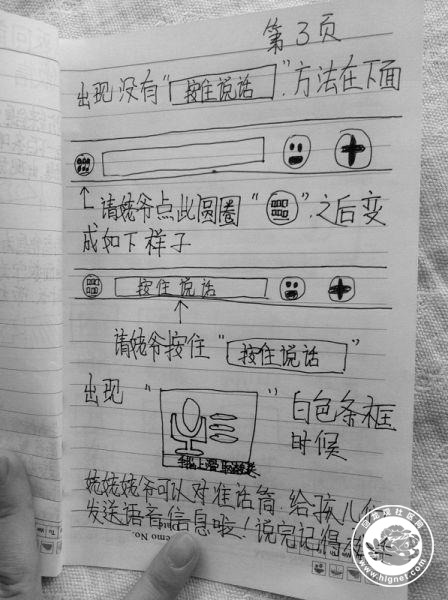 第3页
出现没有“按住说话”.方法在下面
请姥爷点此圆圈“ ”.之后变
成如下样子
按住说话
请姥爷按住“按住说话”
出现“ ”白色条框
时候
手指上滑取消发送
姥姥姥爷可以对准话筒.给孩儿们
发送语音信息啦!说完记得
emo No.
回龙观社区网
www.hlgnet.com